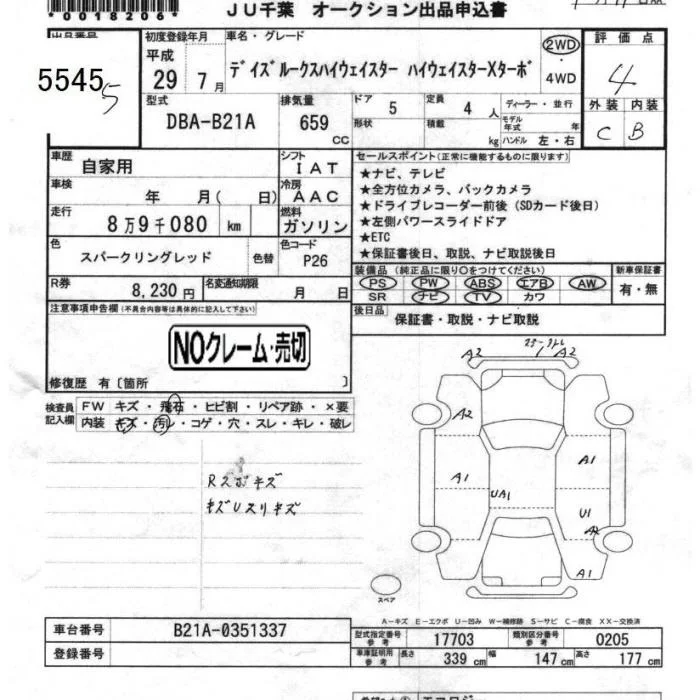 *0018206*
JU千葉 オークション出品申込書
出品番号
55455
初度登録年月
平成
29年7月
車名・グレード
デイズルークスハイウェイスター ハイウェイスターXターボ
2WD
・
4WD
評価点
4
型式
DBA-B21A
排気量
659
CC
ドア 5
定員 4 人
形状
積載 kg
ディーラー・並行
モデル年式 年
ハンドル 左・右
外装 内装
C B
車歴
自家用
シフト
IAT
車検
年 月( 日)
冷房
AAC
走行
8万9千080 km
燃料
ガソリン
色
スパークリングレッド
色替
色コード
P26
R券
8,230円
名変通知期限
月 日
セールスポイント(正常に機能するものに限ります)
★ナビ、テレビ
★全方位カメラ、バックカメラ
★ドライブレコーダー前後(SDカード後日)
★左側パワースライドドア
★ETC
★保証書後日、取説、ナビ取説後日
装備品 (純正品に限り○をつけてください)
PS PW ABS エアB AW
SR ナビ TV カワ
新車保証書
有・無
後日品
保証書・取説・ナビ取説
注意事項申告欄(不具合内容等は具体的に記入して下さい)
NOクレーム・売切
修復歴 有〔箇所 〕
検査員
記入欄
FW キズ・飛石・ヒビ割・リペア跡・×要
内装 キズ・汚レ・コゲ・穴・スレ・キレ・破レ
Rスポキズ
キズUスリキズ
A2 A2
A2
A1 A1
UA1 U1
A1
スペア
A―キズ E―エクボ U―凹み W―補修跡 S―サビ C―腐食 XX―交換済
車台番号 B21A-0351337
登録番号
型式指定番号
参考
17703
類別区分番号
参考
0205
車庫証明用
参考
長さ 339 cm 幅 147 cm 高さ 177 cm